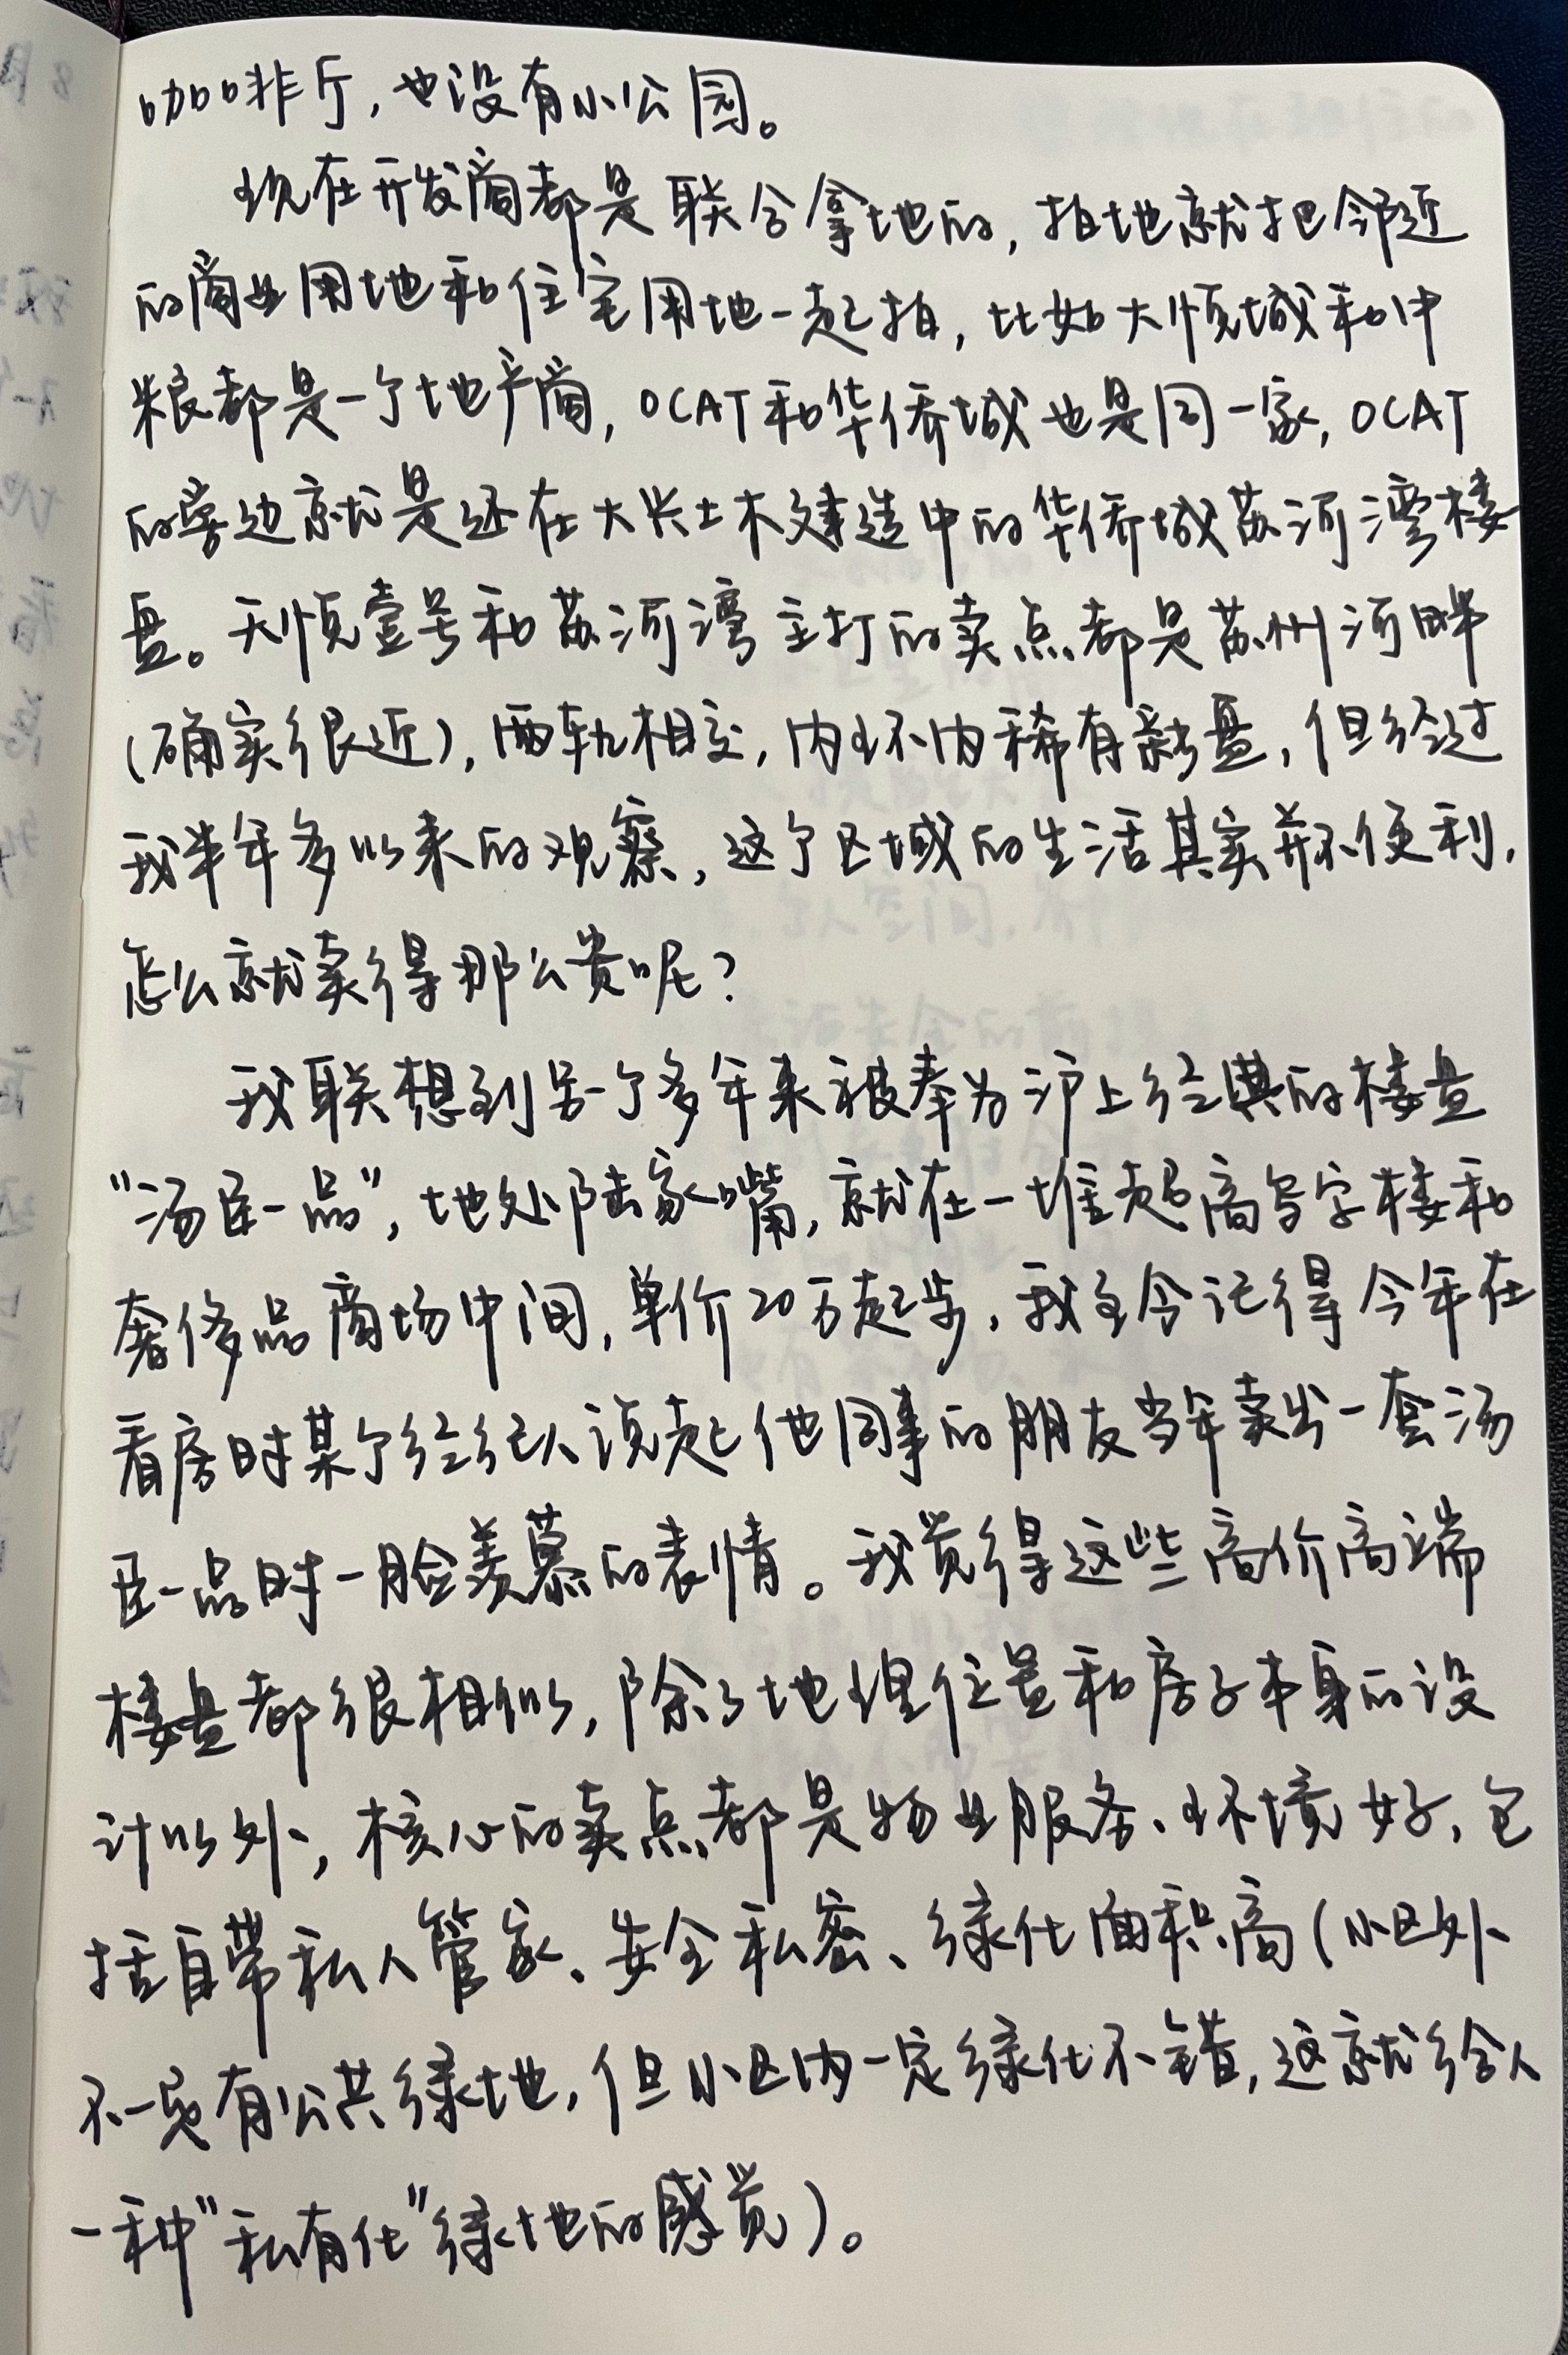 咖啡厅,也没有小公园。
现在开发商都是联合拿地的,拍地就把邻近
的商业用地和住宅用地一起拍,比如大悦城和中
粮都是一个地产商,OCAT和华侨城也是同一家,OCAT
的旁边就是还在大兴土木建造中的华侨城苏河湾楼
盘。天悦壹号和苏河湾主打的卖点都是苏州河畔
(确实很近),两轨相交,内环内稀有新盘,但经过
我半年多以来的观察,这个区域的生活其实并不便利,
怎么就卖得那么贵呢?
我联想到另一个多年来被奉为沪上经典的楼盘
“汤臣一品”,地处陆家嘴,就在一堆超高写字楼和
奢侈品商场中间,单价20万起步,我至今记得今年在
看房时某个经纪人说起他同事的朋友当年卖出一套汤
臣一品时一脸羡慕的表情。我觉得这些高价高端
楼盘都很相似,除了地理位置和房子本身的设
计以外,核心的卖点都是物业服务、环境好,包
括自带私人管家、安全私密、绿化面积高(小区外
不一定有公共绿地,但小区内一定绿化不错,这就给人
一种“私有化”绿地的感觉)。